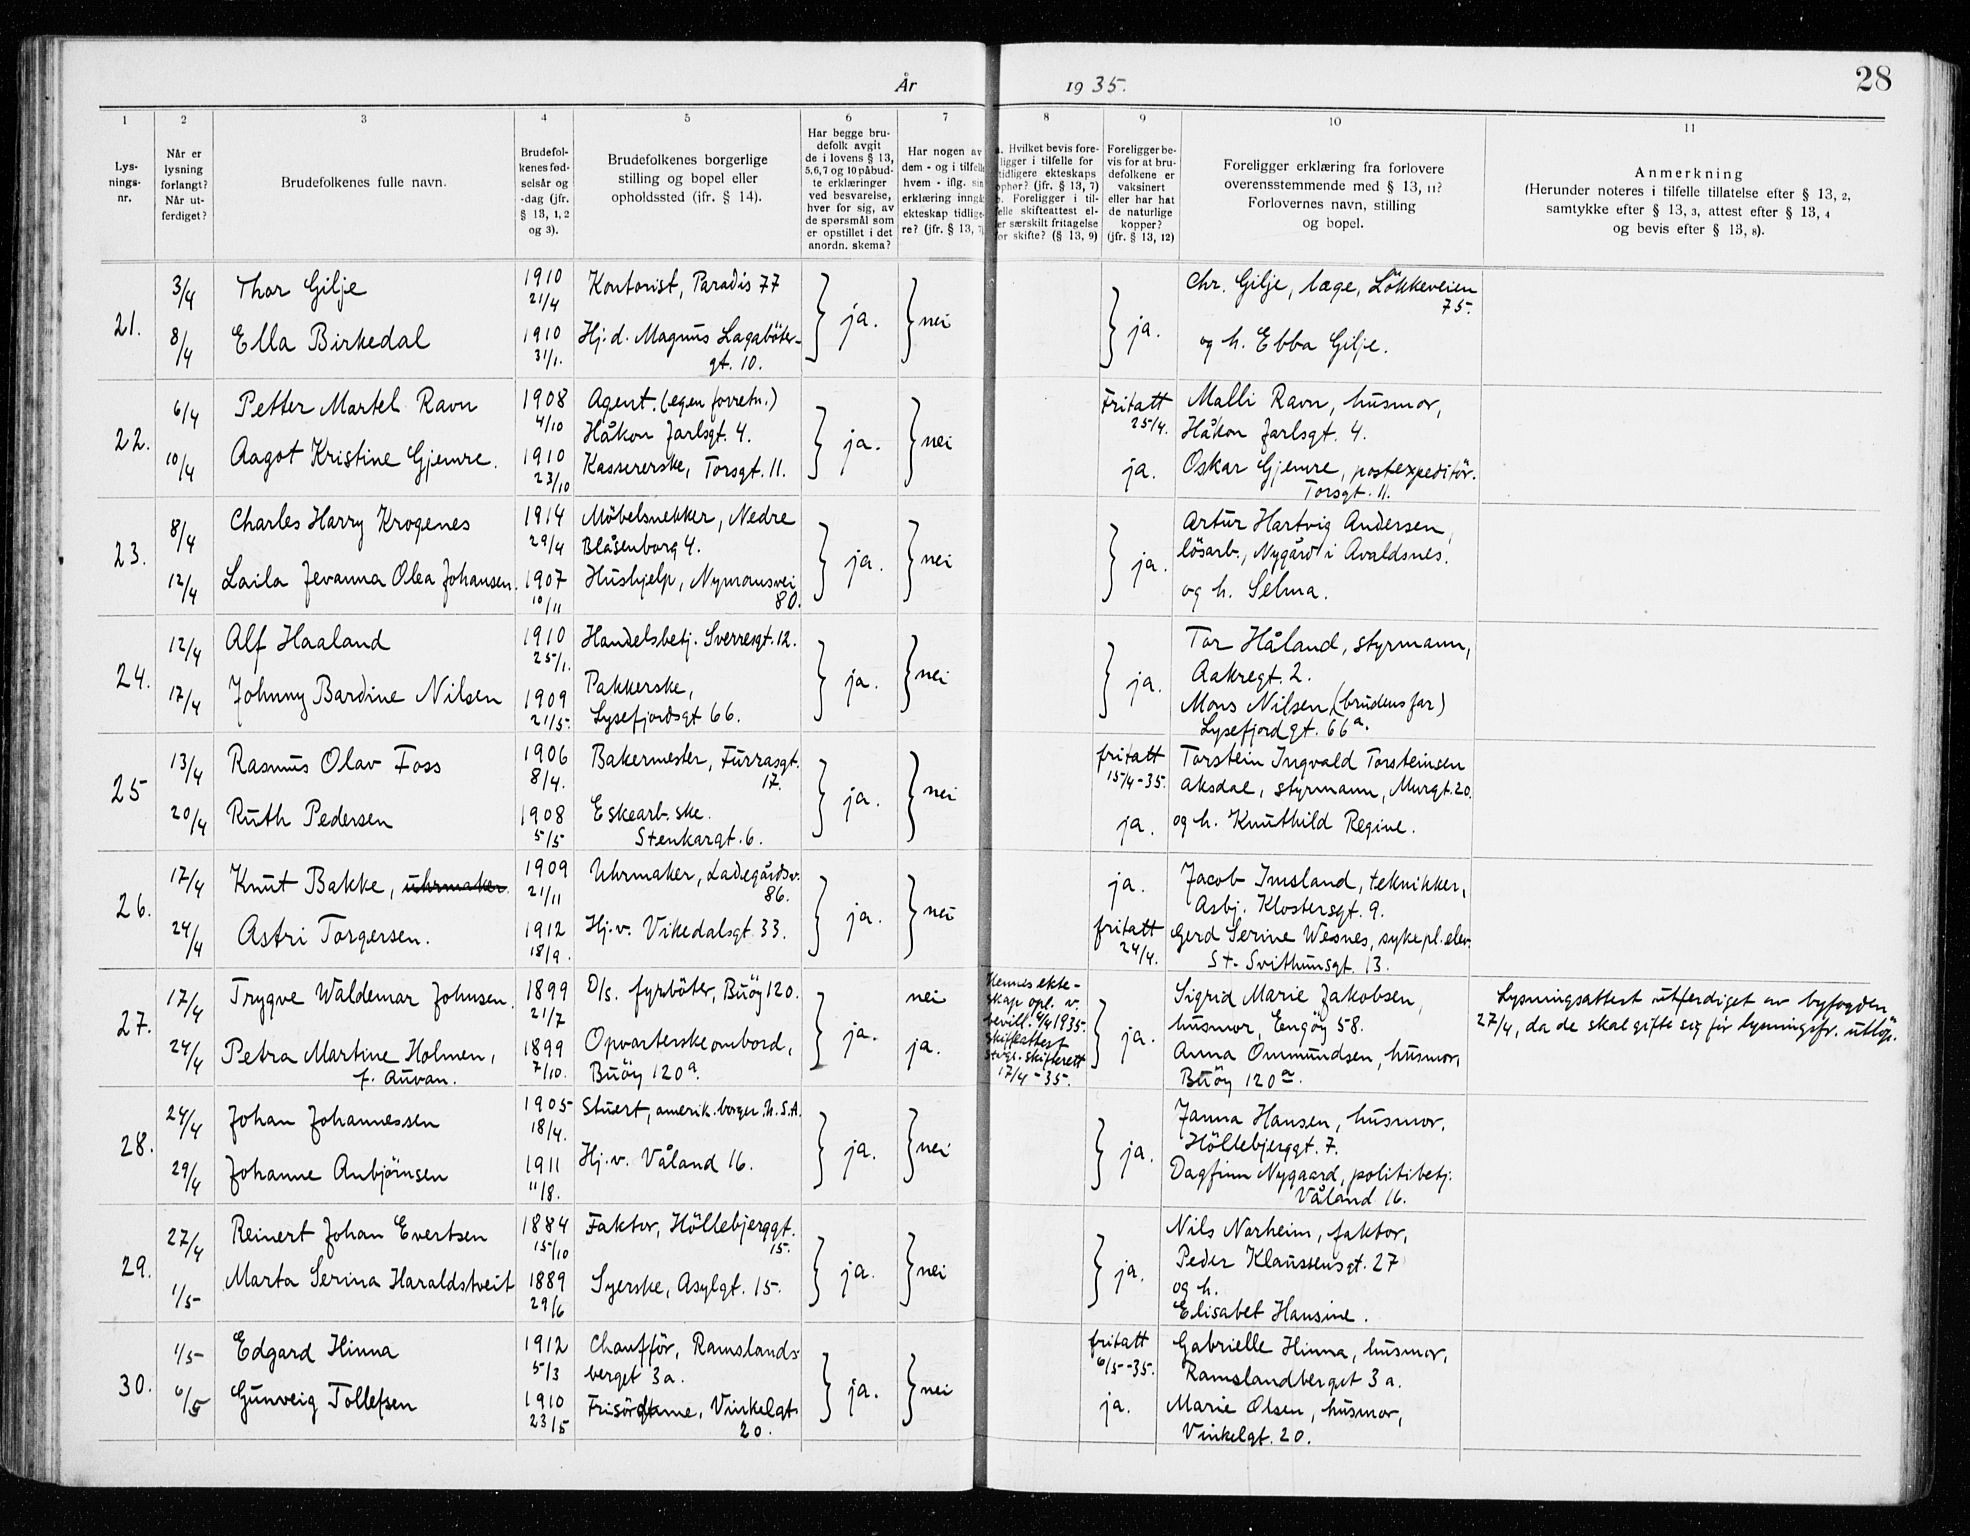 År 1935.
28
1
2
3
4
5
6
7
8
9
10
11
Lys-
nings-
nr.
Når er
lysning
forlangt?
Når ut-
ferdiget?
Brudefolkenes fulle navn.
Brudefol-
kenes fød-
selsår og
-dag (jfr.
§ 13, 1, 2
og 3).
Brudefolkenes borgerlige
stilling og bopel eller
opholdssted (jfr. § 14).
Har begge bru-
defolk avgit
de i lovens § 13,
5,6,7 og 10 påbud-
te erklæringer
ved besvarelse,
hver for sig, av
de spørsmål som
er opstillet i det
anordn. skema?
Har nogen av
dem - og i tilfelle
hvem - iflg. sin
erklæring inngått
ekteskap tidlige-
re? (jfr. § 13, 7)
a. Hvilket bevis fore-
ligger i tilfelle for
tidligere ekteskaps
ophør? (jfr. § 13, 7)
b. Foreligger i til-
felle skifteattest el-
ler særskilt fritagelse
for skifte? (§ 13, 9)
Foreligger be-
vis for at bru-
defolkene er
vaksinert
eller har hat
de naturlige
kopper?
(jfr. § 13, 12)
Foreligger erklæring fra forlovere
overensstemmende med § 13, 11?
Forlovernes navn, stilling
og bopel.
Anmerkning
(Herunder noteres i tilfelle tillatelse efter § 13, 2,
samtykke efter § 13, 3, attest efter § 13, 4
og bevis efter § 13, 8).
21.
3/4 Thor Gilje 1910 21/4 Kontorist, Paradis 77
8/4 Ella Birkedal 1910 31/1. Hj.d. Magnus Lagabøter-
gt. 10.
ja. nei ja.
Chr. Gilje, læge, Løkkeveien
75.
og h. Ebba Gilje.
22.
6/4 Petter Martel Ravn 1908 4/10 Agent. (egen forretn.)
Håkon Jarlsgt. 4.
10/4 Aagot Kristine Gjemre. 1910 23/10 Kassererske, Torsgt. 11.
ja. nei
Fritatt
25/4.
ja.
Malli Ravn, husmor,
Håkon Jarlsgt. 4.
Oskar Gjemre, postexpeditør.
Torsgt. 11.
23.
8/4 Charles Harry Krogenes 1914 29/4 Möbelsnekker, Nedre
Blåsenborg 4.
12/4 Laila Jevanna Olea Johansen. 1907 10/11 Hushjelp, Nymansvei
80.
ja. nei ja.
Artur Hartvig Andersen,
løsarb., Nygård i Avaldsnes.
og h. Selma.
24.
12/4 Alf Haaland 1910 25/1. Handelsbetj. Sverresgt. 12.
17/4 Johnny Bardine Nilsen 1909 21/5. Pakkerske,
Lysefjordsgt 66.
ja. nei ja.
Tor Håland, styrmann,
Aakregt. 2.
Mons Nilsen, (brudens far)
Lysefjordgt. 66a.
25
13/4 Rasmus Olav Foss 1906 8/4. Bakermester, Furrasgt.
17.
20/4 Ruth Pedersen 1908 5/5 Eskearb.ske.
Stenkargt. 6.
ja. nei
fritatt
15/4-35.
ja.
Torstein Ingvald Torsteinsen
Aksdal, styrmann, Murgt. 20.
og h. Knuthild Regine.
26.
17/4 Knut Bakke, uhrmaker 1909 21/11 Uhrmaker, Ladegårdsv.
86.
24/4 Astri Torgersen. 1912 18/9. Hj.v. Vikedalsgt. 33.
ja. nei
ja.
fritatt
24/4.
Jacob Imsland, tekniker,
Asbj. Klostersgt. 9.
Gerd Serine Wesnes, sykepl.elev.
St. Svithunsgt. 13.
27.
17/4 Trygve Waldemar Johnsen. 1899 21/7 D/s. fyrbøter, Buøy 120.
24/4 Petra Martine Holmen, 1899 7/10. Opvarterske ombord,
f. Auvan. Buøy 120a.
ja. nei
ja.
Hennes ekte-
skap opl. v.
bevill. 4/4 1935.
Skifteattest
Stvgr. skifterett
17/4-35.
ja.
Sigrid Marie Jakobsen,
husmor, Engøy 58.
Anna Ommundsen, husmor,
Buøy 120a.
Lysningsattest utferdiget av byfogden
27/4, da de skal gifte sig før lysningsfr. utløp.
28.
24/4 Johan Johannessen 1905 18/4. Stuert, amerik. borger. U.S.A.
29/4 Johanne Anbjørnsen 1911 11/8. Hj.v. Våland 16.
ja. nei ja.
Janna Hansen, husmor.
Höllebjerggt. 7.
Dagfinn Nygaard, politibetj.
Våland 16.
29.
27/4 Reinert Johan Evertsen 1884 15/10 Faktor, Höllebjerggt.
15.
1/5 Marta Serina Haraldstveit 1889 29/6 Syerske, Asylgt. 15.
ja. nei ja.
Nils Norheim, faktor,
Peder Klaussensgt. 27
og h.
Elisabet Hansine.
30.
1/5 Edgard Hinna 1912 5/3 Chauffør, Ramslands-
berget 3a.
6/5 Gunveig Tollefsen 1910 23/5 Frisørdame, Vinkelgt.
20.
ja. nei
fritatt
6/5-35.
ja.
Gabrielle Hinna, husmor,
Ramslandberget 3a.
Marie Olsen, husmor,
Vinkelgt. 20.